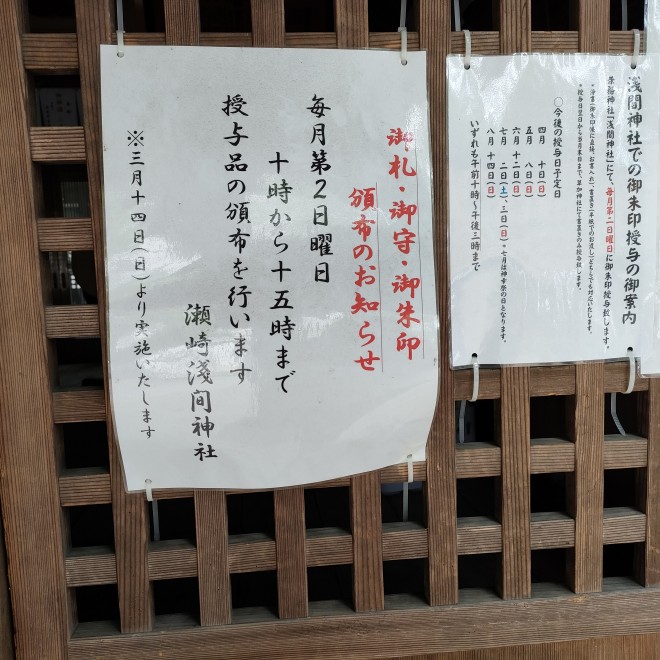 御札・御守・御朱印
頒布のお知らせ
毎月第2日曜日
十時から十五時まで
授与品の頒布を行います
瀬崎浅間神社
※三月十四日(日)より実施いたします
浅間神社での御朱印授与の御案内
兼務神社「浅間神社」にて、毎月第二日曜日に御朱印授与致します。
○今後の授与日予定日
四月 十日(日)
五月 八日(日)
六月 十二日(日)
七月 二日(土)、三日(日)
八月 十四日(日)
いずれも午前十時～午後三時まで